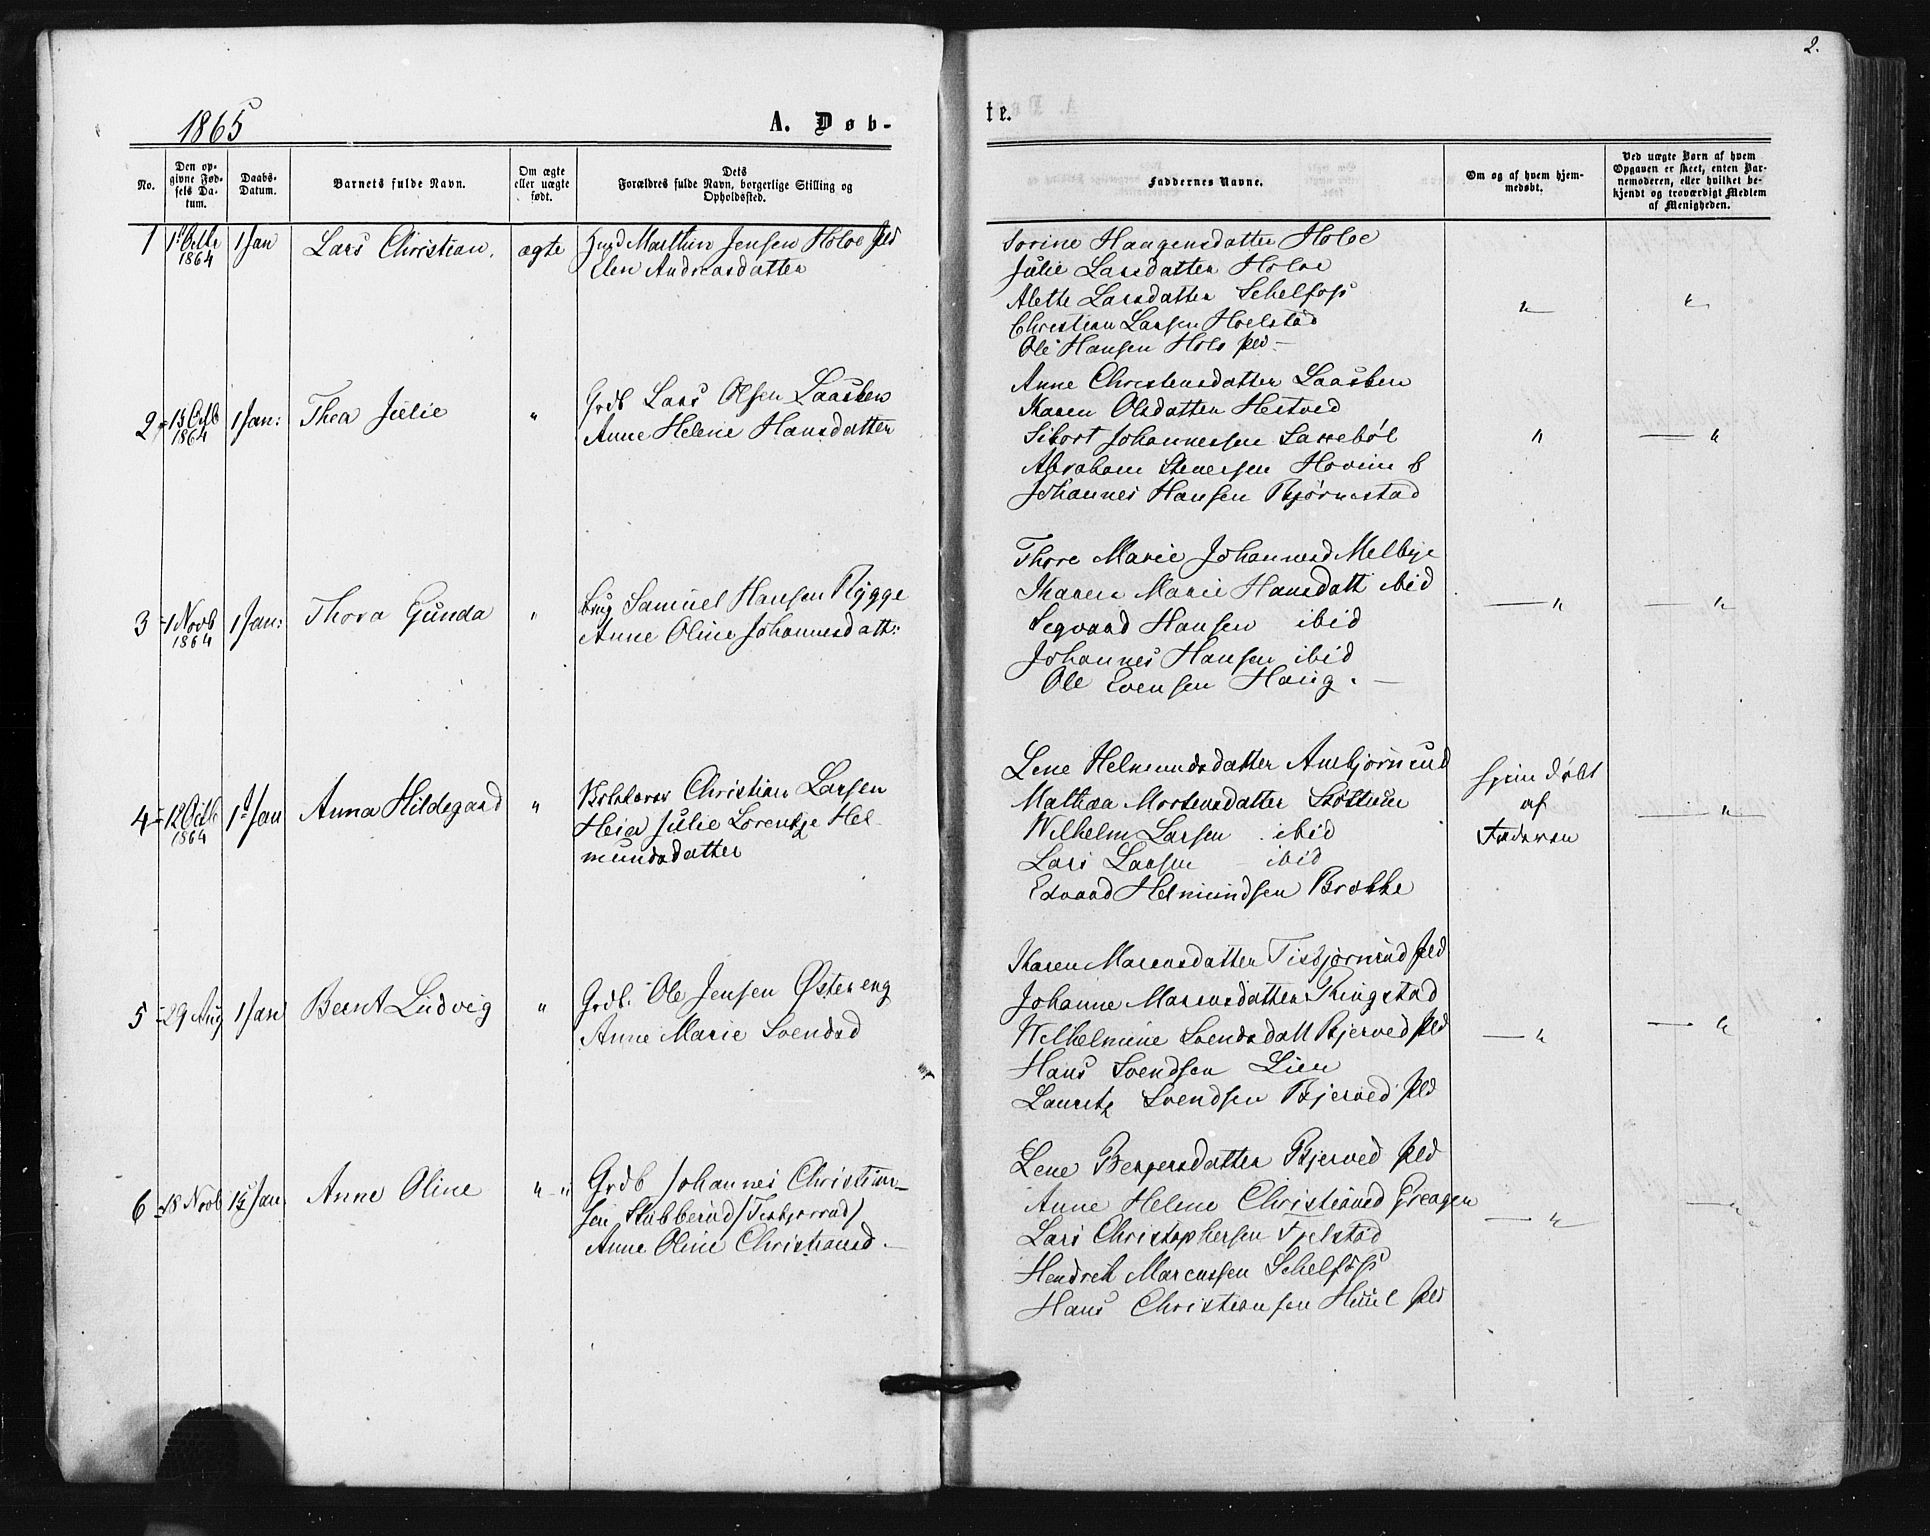 2.
1865
A. Døb-
te.
No.
Den op-
givne Fød-
sels Da-
tum.
Daabs-
Datum.
Barnets fulde Navn.
Om ægte
eller uægte
født.
Dets
Forældres fulde Navn, borgerlige Stilling og
Opholdssted.
Faddernes Navne.
Om og af hvem hjem-
medøbt.
Ved uægte Børn af hvem
Opgaven er skeet, enten Bar-
nemoderen, eller hvilket be-
kjendt og troværdigt Medlem
af Menigheden.
1
1864
1 Jan
Lars Christian.
ægte
Marthin Jensen Holoe
Elen Andreasdatter
Sorine Haagensdatter Holoe
Julie Larsdatter Holoe
Alette Larsdatter Schelfoss
Christian Larsen Hoelstad
Ole Hansen Holo
"
"
2
15 Octb
1864
1 Jan:
Thea Julie
"
Grdb Lars Olsen Laasben
Anne Helene Hansdatter
Anne Christensdatter Laasben
Karen Olsdatter Hestved
Johannessen
Abraham Hovin &
Johannes Hansen Bjørnestad
"
— "
3
1 Novb
1864
1 Jan:
Thora Gunda
"
Brug Samuel Hansen Rygge
Anne Oline Johannesdatt:
Thore Marie Johannesd Melbye
Karen Marie Hansdatt ibid
Segvard Hansen ibid
Johannes Hansen ibid
Ole Evensen Haug. —
— "
— "
4
12 Octb
1864
1st Jan
Anna Hildegaard
"
Christian Larsen
Heier Julie Lorentze Hel-
mundsdatter
Lene Helmundsdatter Ambjørnrud
Mathea Mortensdatter Støttum
Wilhelm Larsen ibid
Lars Larsen — ibid
Edvard Helmundsen Brække
hjem døbt
af
Faderen
— "
5
29 Aug
1 Jan
Bernt Ludvig
"
Grdb. Ole Jensen Østereng
Anne Marie Svendsd
Karen Marensdatter Tisbjørnrud Pld
Johanne Marensdatter Ringstad
Wilhelmine Svendsdatt Bjerved Pld
Hans Svendsen Lien
Lauritz Svendsen Bjerved Pld
— "
— "
6
18 Novb
15 Jan.
Anne Oline
" "
Grdb Johannes Christian-
sen Stubberud /Tisbjørnrud/
Anne Oline Christiansd. —
Lene Bergersdatter Bjerved Pld
Anne Helene Christiansd
Lars Christophersen Fjelstad
Hendrik Marcussen Schelfoss
Hans Christiansen Huul Pld
— "
— "